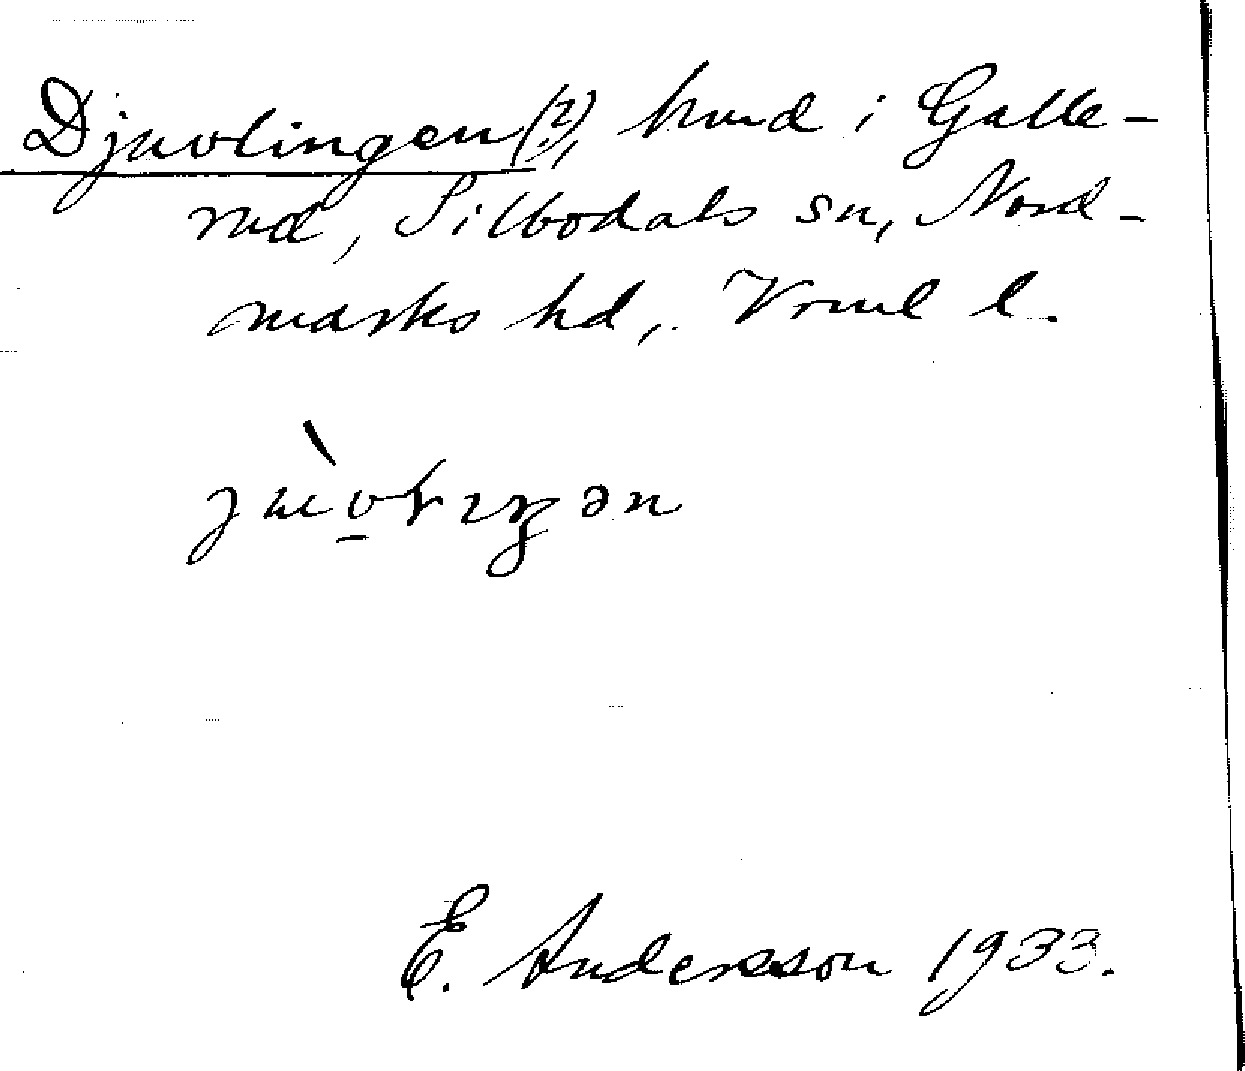 Djuvlingen(?), hmd i Galle-
rud, Silbodals sn, Nord-
marks hd, Vrml l.
E. Andersson 1933.